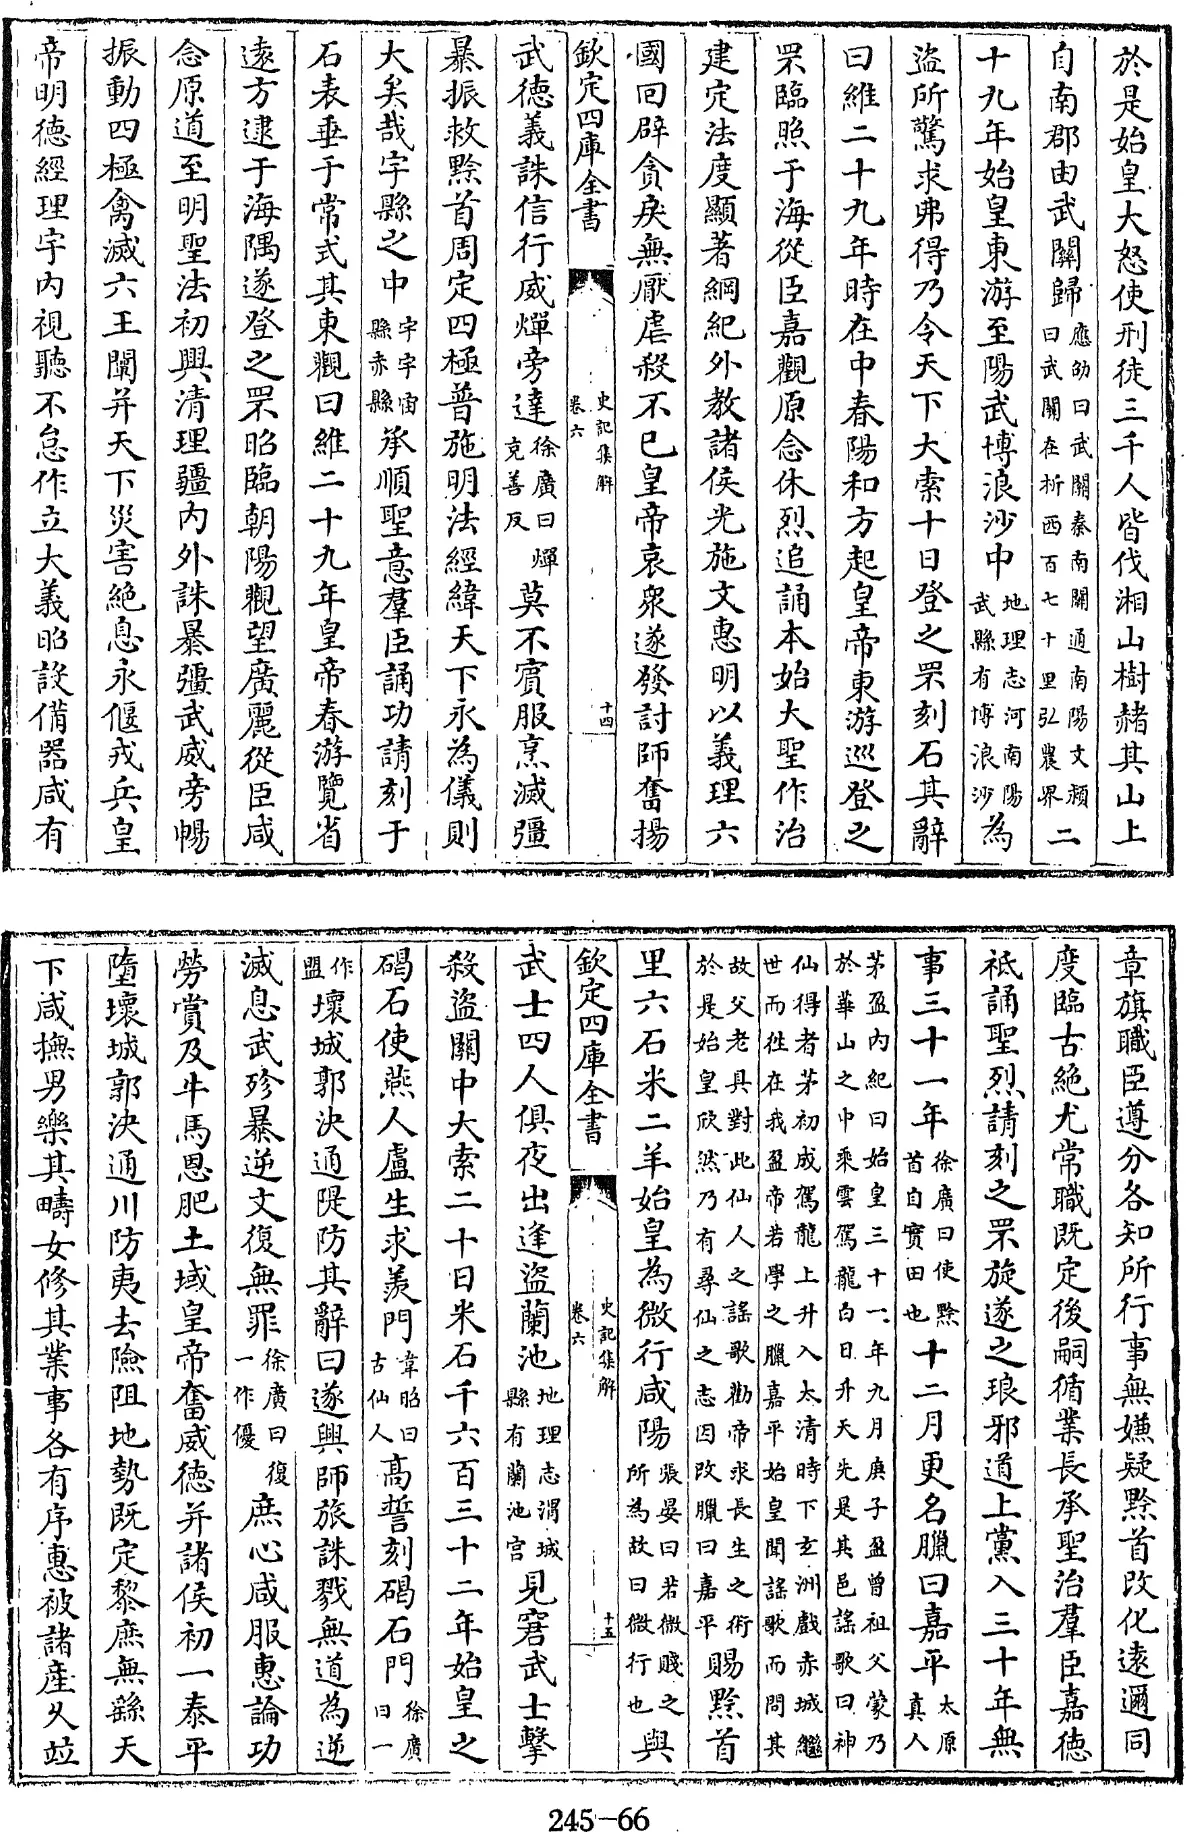 於是始皇大怒使刑徒三千人皆伐湘山樹赭其山上
自南郡由武關歸應劭曰武關秦南關通南陽文穎曰武關在析西百七十里弘農界二
十九年始皇東游至陽武博浪沙中地理志河南陽武縣有博浪沙為
盜所驚求弗得乃令天下大索十日登之罘刻石其辭
曰維二十九年時在中春陽和方起皇帝東游巡登之
罘臨照于海從臣嘉觀原念休烈追誦本始大聖作治
建定法度顯著綱紀外教諸侯光施文惠明以義理六
國回辟貪戾無厭虐殺不已皇帝哀衆遂發討師奮揚
欽定四庫全書 史記集解卷六 十四
武德義誅信行威燀旁達徐廣曰燀充善反莫不賓服烹滅彊
暴振救黔首周定四極普施明法經緯天下永為儀則
大矣哉宇縣之中宇宇宙縣赤縣承順聖意羣臣誦功請刻于
石表垂于常式其東觀曰維二十九年皇帝春游覽省
遠方逮于海隅遂登之罘昭臨朝陽觀望廣麗從臣咸
念原道至明聖法初興清理疆内外誅暴彊武威旁暢
振動四極禽滅六王闡并天下災害絶息永偃戎兵皇
帝明德經理宇内視聽不怠作立大義昭設備器咸有
章旗職臣遵分各知所行事無嫌疑黔首改化遠邇同
度臨古絶尤常職既定後嗣循業長承聖治羣臣嘉德
祗誦聖烈請刻之罘旋遂之琅邪道上黨入三十年無
事三十一年徐廣曰使黔首自實田也十二月更名臘曰嘉平太原真人
茅盈内紀曰始皇三十一年九月庚子盈曾祖父蒙乃於華山之中乘雲駕龍白日升天先是其邑謠歌曰神
仙得者茅初成駕龍上升入太清時下玄洲戲赤城繼世而徃在我盈帝若學之臘嘉平始皇聞謠歌而問其
故父老具對此仙人之謠歌勸帝求長生之術於是始皇欣然乃有尋仙之志因改臘曰嘉平賜黔首
里六石米二羊始皇為微行咸陽張晏曰若微賤之所為故曰微行也與
欽定四庫全書 史記集解卷六 十五
武士四人俱夜出逢盜蘭池地理志渭城縣有蘭池宫見窘武士擊
殺盜關中大索二十日米石千六百三十二年始皇之
碣石使燕人盧生求羨門韋昭曰古仙人高誓刻碣石門徐廣曰一
作盟壞城郭決通隄防其辭曰遂興師旅誅戮無道為逆
滅息武殄暴逆文復無罪徐廣曰復一作優庶心咸服惠論功
勞賞及牛馬恩肥土域皇帝奮威德并諸侯初一泰平
墮壞城郭決通川防夷去險阻地勢既定黎庶無繇天
下咸撫男樂其疇女修其業事各有序惠被諸産久竝
245-66